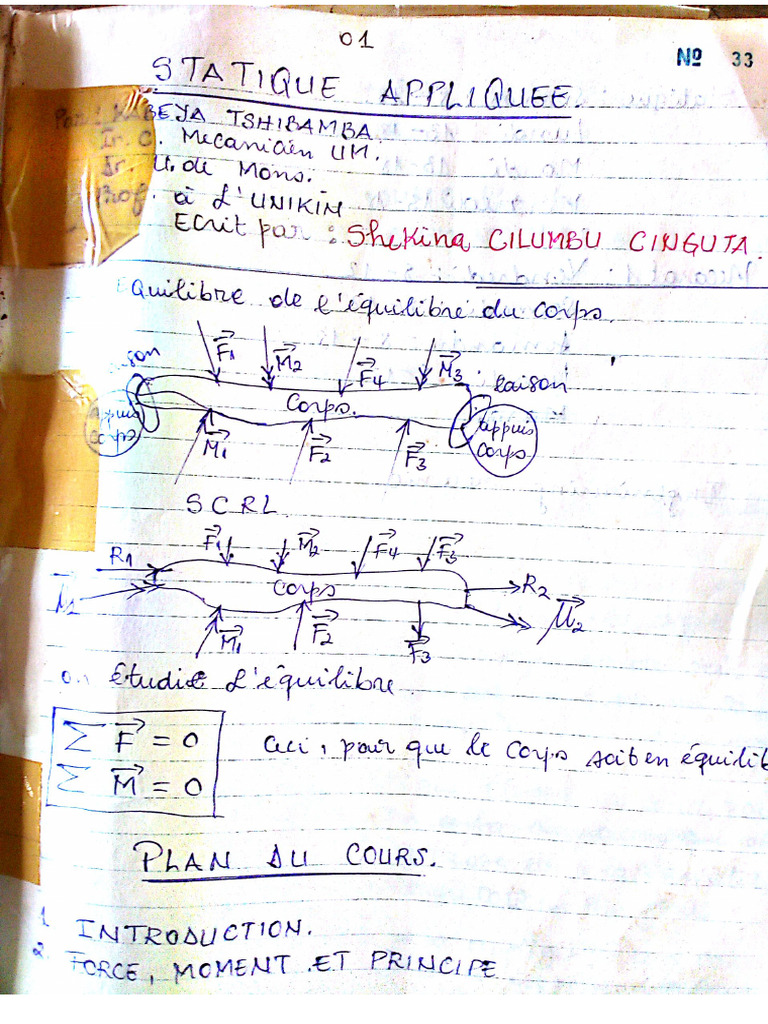 01
Nº 33
STATIQUE APPLIQUEE
Par : KABEYA TSHIBAMBA.
Ir. C. Mecanicien UM.
Ir. U. de Mons.
Prof. à L'UNIKIN
Ecrit par : Shekina CILUMBU CINGUTA.
Equilibre de l'équilibre du corps.
F1 M2 F4 M3
son
liaison
Corps.
appuis
corps
appuis
corps
M1 F2 F3
SCRL
F1 M2 F4 F3
R1
R2
Corps
M2
M1 F2 F3
On Etudie L'équilibre
∑ F = 0
∑ M = 0
Ceci, pour que le corps soit en équilib
PLAN DU COURS.
1 INTRODUCTION.
2 FORCE, MOMENT ET PRINCIPE